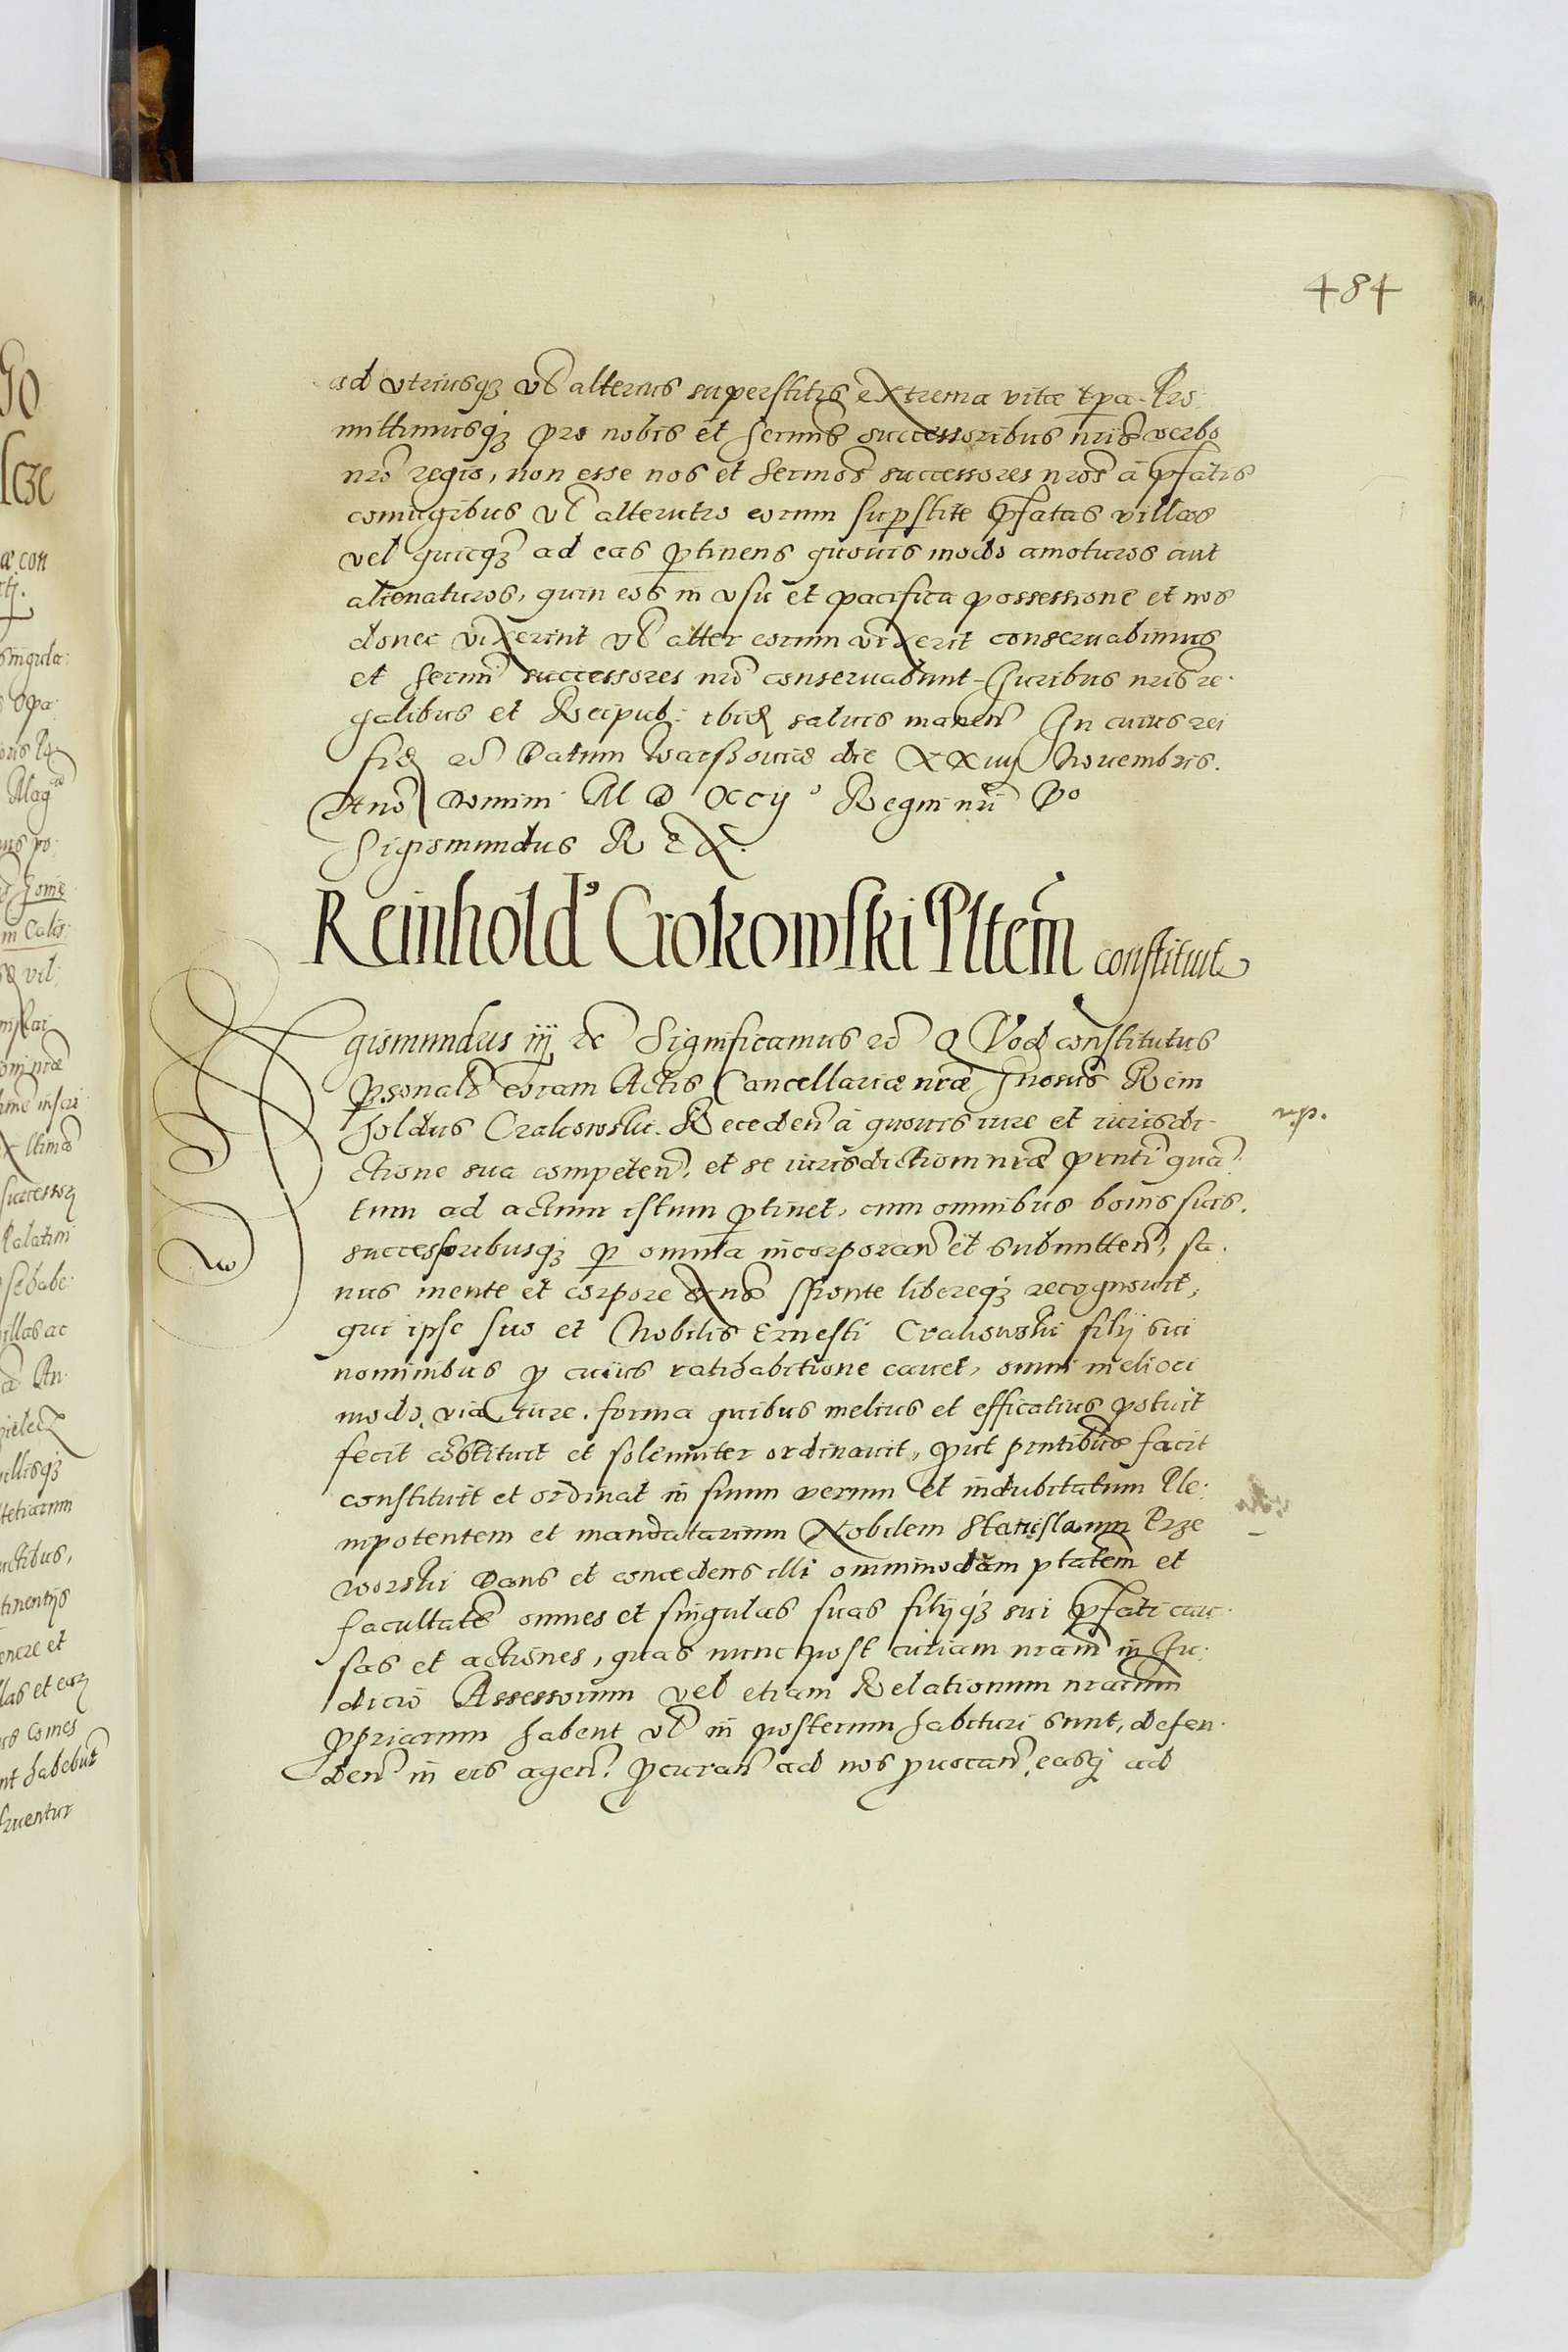 484
ad vtriusqȝ vł alterius superstitis extrema vitæ tpa. Pro
mittimusqȝ pro nobis et Sermis successoribus nris verbo
nro regio, non esse nos et Sermos successores nros à pfatis
coniugibus vł alterutro eorum suprstite pfatas villas
vel quicqȝ ad eas ptinens quouis modo amoturos aut
alienaturos, quin eos in vsu et pacifica possessione et nos
donec vixerint vł alter eorum vixerit conseruabimus
et Sermi successores nri conseruabunt. Juribus nris re.
galibus et Reipub: ibid saluis manen In cuius rei
fid ac Datum Warssouiæ die XXiiij Nouembris.
Anno Domini M D XCij° Regni nri V°
Sigismundus REX.
Reinhold' Crokowski Pltem constituit
Sigismundus iij &c Significamus &c QVod constitutus
psonalr coram Actis Cancellariæ nræ Gnosus Rein
holdus Crakowski. Receden à quouis iure et iurisdi-
ctione sua competen. et se iurisdictioni nræ pnti quan
tum ad actum istum ptinet, cum omnibus bonis suis.
successoribusqȝ p omnia incorporan et submitten, sa.
nus mente et corpore exns sponte libereqȝ recognouit,
qui ipse suo et Nobilis Ernesti Crakowski filij sui
nominibus p cuius ratihabitione cauet, omni meliori
modo, via, iure, forma quibus melius et efficatius potuit
fecit constituit et solenniter ordinauit, put pntibus facit
constituit et ordinat in suum verum et indubitatum Ple.
nipotentem et mandatarium Nobilem Stanislaum Prze
worski Dans et concedens illi omnimodam ptatem et
facultatē omnes et singulas suas filijqȝ sui pfati cau.
sas et actiones, quas nunc post curiam nram in Ju.
dicio Assessorum vel etiam Relationum nrarum
ppriarum habent vł in posterum habituri sunt, defen.
den in eis agen. pcuran ad nos puocan, easqȝ ad